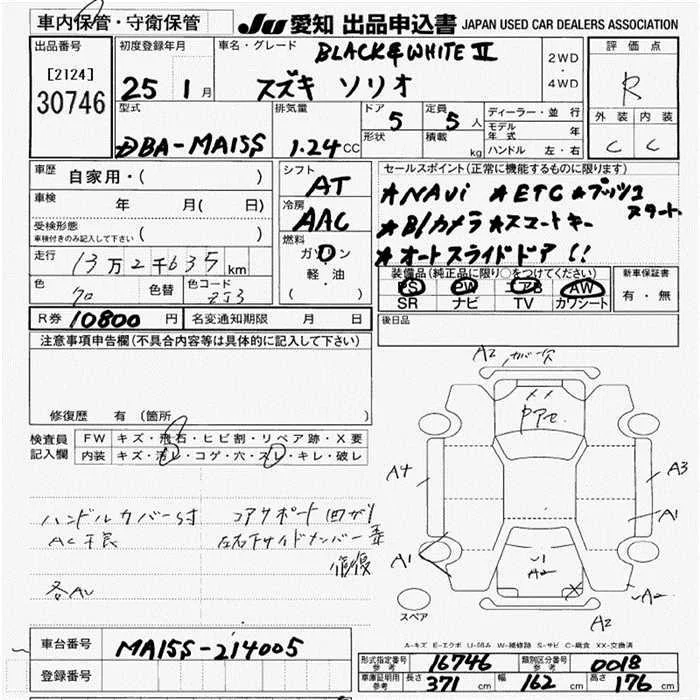 車内保管・守衛保管
JU 愛知 出品申込書 JAPAN USED CAR DEALERS ASSOCIATION
出品番号
[2124]
30746
初度登録年月
25 1 月
車名・グレード
BLACK & WHITE Ⅱ
スズキ ソリオ
2WD
・
4WD
評価点
R
外装 内装
C C
型式
DBA-MA15S
排気量
1.24 CC
ドア
5
定員
5 人
形状
積載
kg
ディーラー・並行
モデル年式 年
ハンドル 左・右
車歴
自家用・( )
車検
年 月( 日)
受検形態
車検付きのみ記入して下さい ( )
走行
13万2千635 km
色
クロ
色替
色コード
ZJ3
シフト
AT
冷房
AAC
燃料
ガソリン
軽・油
( )
セールスポイント(正常に機能するものに限ります)
★NAVi ★ETC ★プッシュスタート
★B/カメラ ★スマートキー
★オートスライドドア!!
装備品(純正品に限り○をつけてください)
PS PW エアB AW
SR ナビ TV カワシート
新車保証書
有・無
R券 10800 円
名変通知期限 月 日
後日品
注意事項申告欄(不具合内容等は具体的に記入して下さい)
修復歴 有(箇所 )
検査員記入欄
FW キズ・飛石・ヒビ割・リペア跡・X要
内装 キズ・汚レ・コゲ・穴・スレ・キレ・破レ
ハンドルカバーS付 コアサポート凹ガリ
AC不良 左右下サイドメンバー
修復
A2
A4
A3
A1
A1
A2
A2
A2
スペア
A-キズ E-エクボ U-凹み W-補修跡 S-サビ C-腐食 XX-交換済
車台番号
MA15S-214005
登録番号
形式指定番号 参考 16746
類別区分番号 参考 0018
車庫証明用 参考 長さ 371 cm 幅 162 cm 高さ 176 cm